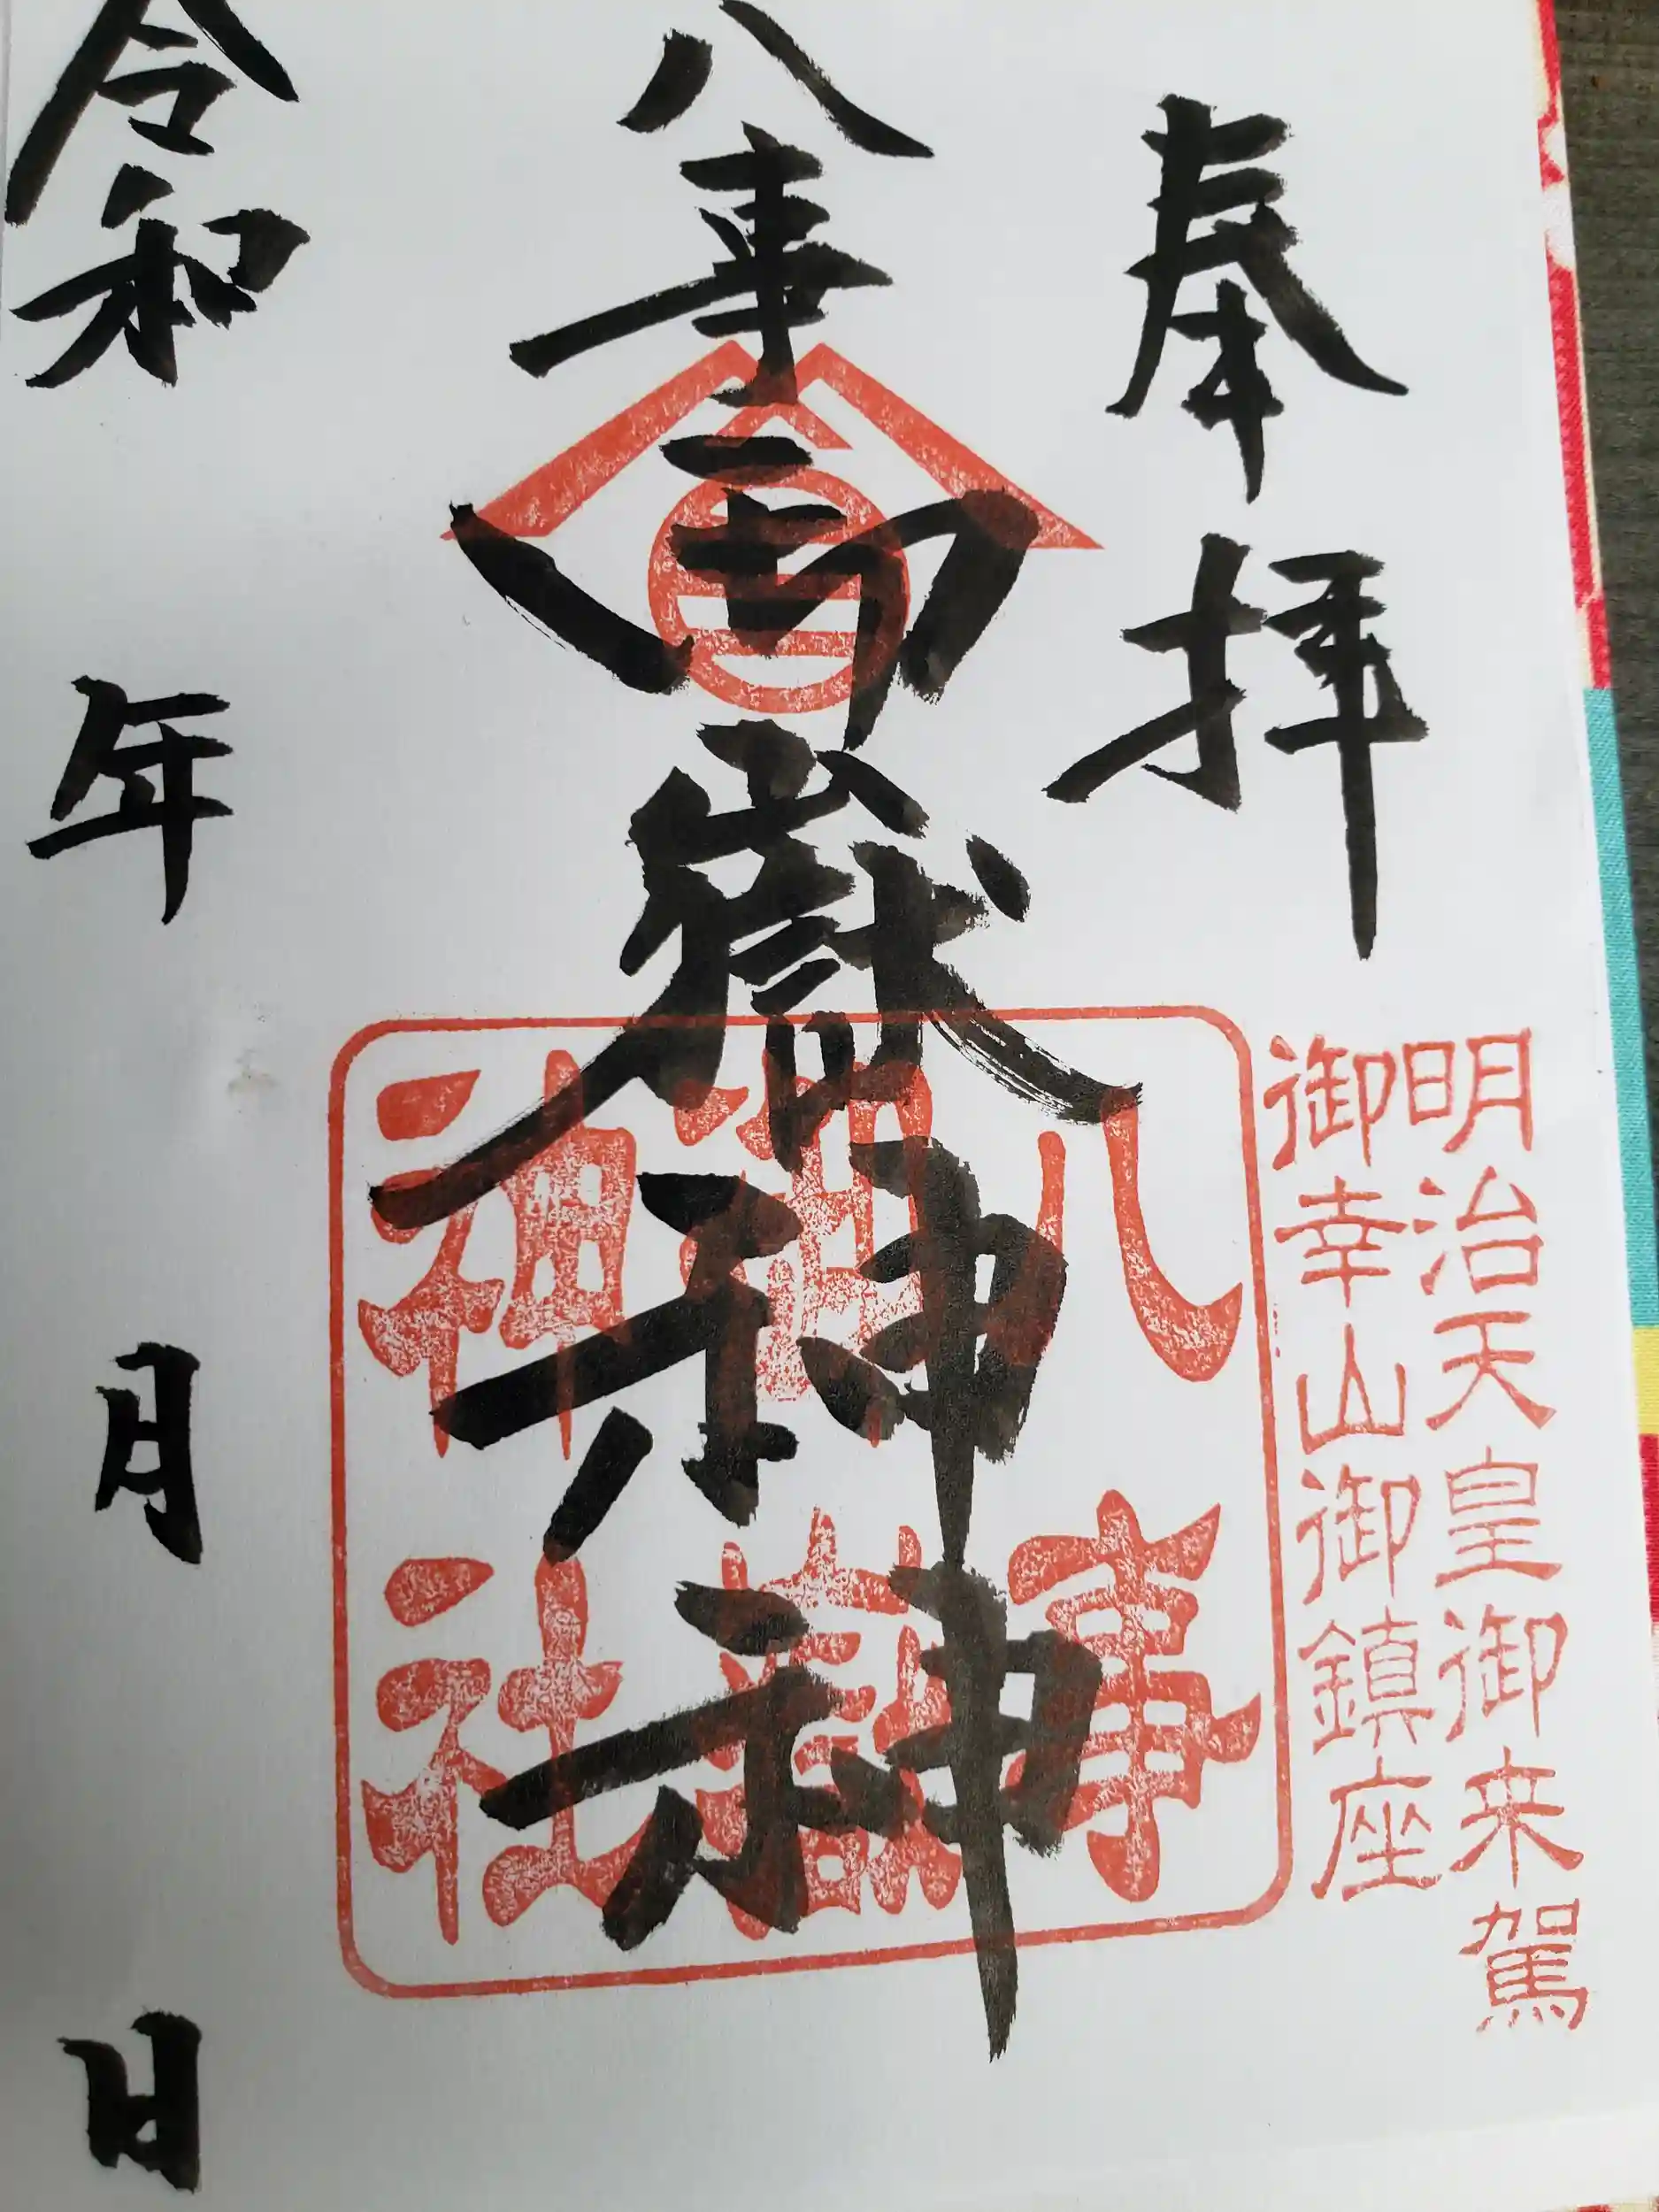 奉拝
明治天皇御来駕
御幸山御鎮座
八事
御嶽神社
八事
御嶽
神社
令和　年　月　日